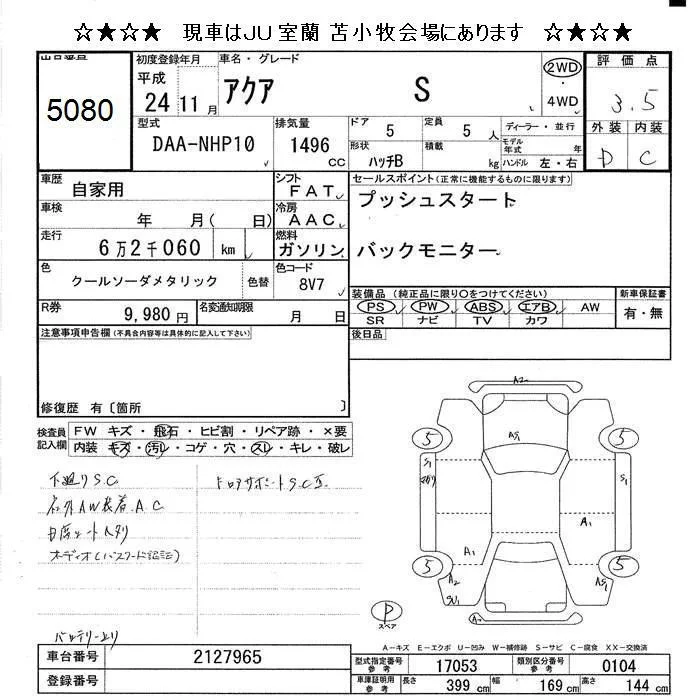 ☆★☆★ 現車はJU室蘭 苫小牧会場にあります ☆★☆★
5080
初度登録年月
平成
24 11 月
車名・グレード
アクア S
2WD
・
4WD
評価点
3.5
外装 内装
D C
型式
DAA-NHP10
排気量
1496
CC
ドア 5
定員 5 人
形状 ハッチB
積載 kg
ディーラー・並行
モデル年式 年
ハンドル 左・右
車歴
自家用
シフト
FAT
車検
年 月( 日)
冷房
AAC
走行
6万2千060 km
燃料
ガソリン
色
クールソーダメタリック
色替
色コード
8V7
R券
9,980円
名変通知期限
月 日
セールスポイント(正常に機能するものに限ります)
プッシュスタート
バックモニター
装備品 (純正品に限り○をつけてください)
PS PW ABS エアB AW
SR ナビ TV カワ
新車保証書
有・無
後日品
注意事項申告欄(不具合内容等は具体的に記入して下さい)
修復歴 有〔箇所 〕
検査員
記入欄
FW キズ・飛石・ヒビ割・リペア跡・×要
内装 キズ・汚レ・コゲ・穴・スレ・キレ・破レ
下廻りS.C
社外AW装着 A.C
オーディオ(パスワード記証)
ドロアサポートS.C
バッテリー上り
A2
5 5
A1
S1 S1
A1
A1
5 5
A2
P
スペア
A-キズ E-エクボ U-凹み W-補修跡 S-サビ C-腐食 XX-交換済
車台番号
2127965
登録番号
型式指定番号
参考
17053
類別区分番号
参考
0104
車庫証明用
参考
長さ 399 cm
幅 169 cm
高さ 144 cm